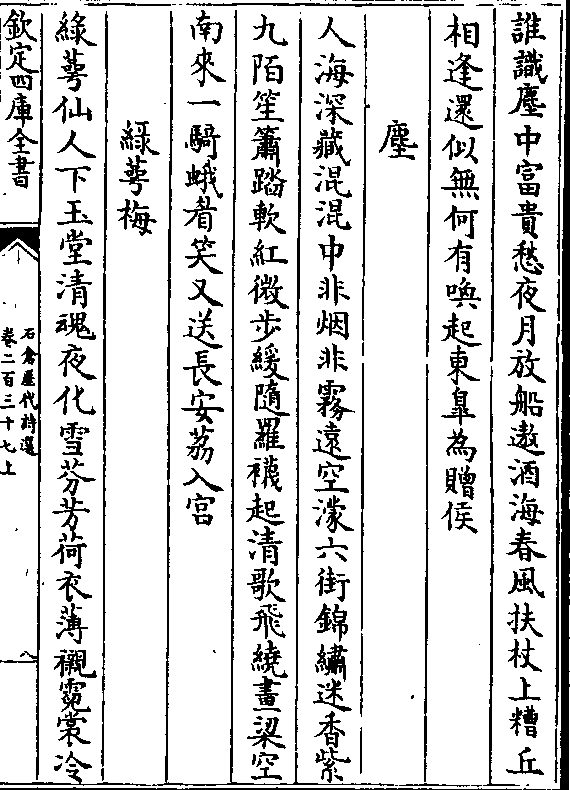 誰識塵中富貴愁夜月放船遨酒海春風扶杖上糟丘
相逢還似無何有喚起東臯為贈侯
塵
人海深藏混混中非烟非霧遠空濛六街錦繡迷香紫
九陌笙簫踏軟紅微步緩隨羅襪起清歌飛繞畫梁空
南來一騎蛾眉笑又送長安荔入宫
綠萼梅
綠萼仙人下玉堂清魂夜化雪芬芳荷衣薄襯霓裳冷
欽定四庫全書
石倉歷代詩選
卷二百三十七上
八